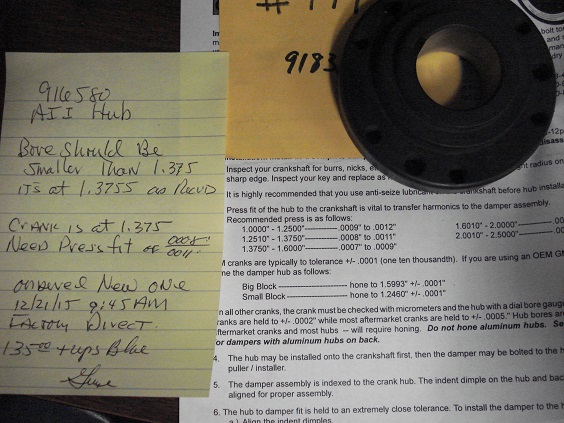 916580
AII Hub
Bore should Be
smaller Than 1.375
it's at 1.3755 as Recvd
Crank is at 1.375
Need Press fit of .0008"
.0011"
ordered New one
12/21/15 9:45 AM
Factory Direct
135.00 + ups Blue
9183
Inspect your crankshaft for burrs, nicks,
sharp edge. Inspect your key and replace as
radius on
It is highly recommended that you use anti-seize lubricant crankshaft before hub
Press fit of the hub to the crankshaft is vital to transfer harmonics to the damper assembly.
Recommended press is as follows:
1.0000" - 1.2500"-----------.0009" to .0012"
1.2510" - 1.3750"-----------.0008" to .0011"
1.3750" - 1.6000"-----------.0007" to .0009"
1.6010" - 2.0000"
2.0010" - 2.5000"
cranks are typically to tolerance +/- .0001 (one ten thousandth). If you are using an OEM
the damper hub as follows:
Big Block ------------------------ hone to 1.5993" +/- .0001"
Small Block ---------------------- hone to 1.2460" +/- .0001"
all other cranks, the crank must be checked with micrometers and the hub with a dial bore
cranks are held to +/- .0002" while most aftermarket cranks are held to +/- .0005." Hub bores
aftermarket cranks and most hubs -- will require honing. Do not hone aluminum hubs.
or dampers with aluminum hubs on back.
4. The hub may be installed onto the crankshaft first, then the damper may be bolted to the
puller / installer.
5. The damper assembly is indexed to the crank hub. The indent dimple on the hub and
aligned for proper assembly.
6. The hub to damper fit is held to an extremely close tolerance. To install the damper to the
a.) Align the indent dimples.